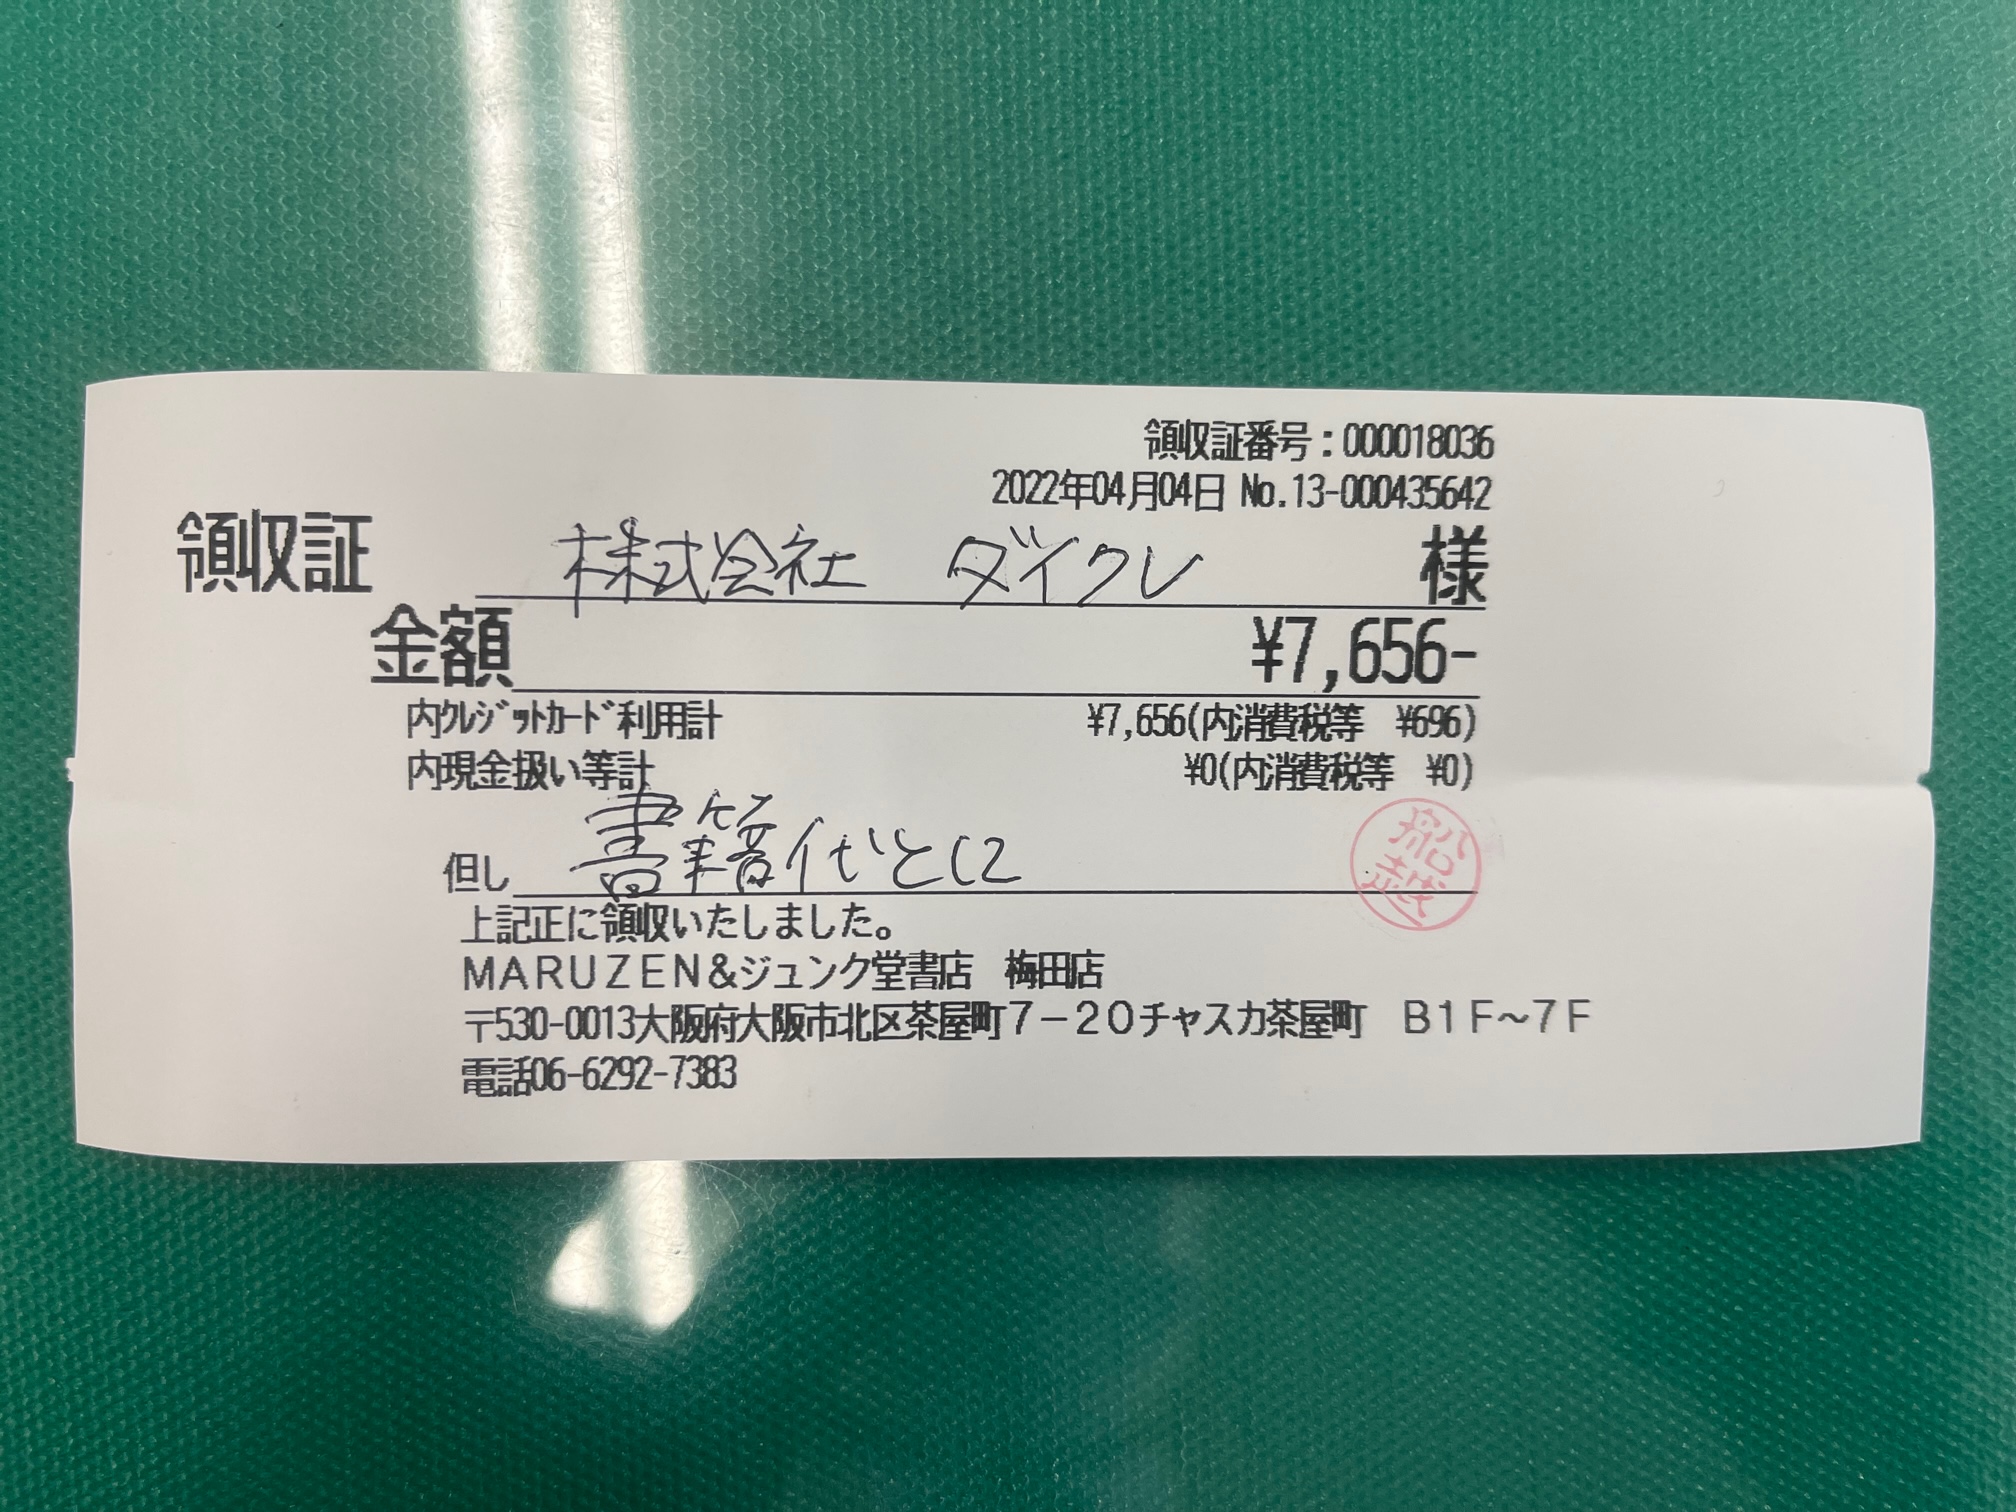 領収証
領収証番号：000018036
2022年04月04日 No.13-000435642
株式会社 ダイクレ 様
金額 ¥7,656-
内クレジットカード利用計 ¥7,656(内消費税等 ¥696)
内現金扱い等計 ¥0(内消費税等 ¥0)
但し 書籍代として
上記正に領収いたしました。
MARUZEN&ジュンク堂書店 梅田店
〒530-0013大阪府大阪市北区茶屋町7-20チャスカ茶屋町 B1F～7F
電話06-6292-7383